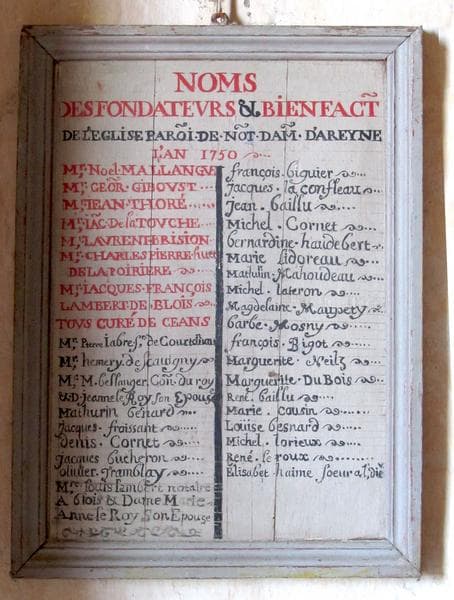 NOMS
DES FONDATEVRS & BIENFACT
DE L'EGLISE PAROI · DE · NOT · DAM · D'AREYNE
L'AN 1750
Mr. Noel · MALLANGVE
Mr. GEOR · GIBOVST
Mr. JEAN · THORÉ
Mr. IAC · De · la TOUCHE
Mr. LAVRENT · BRISION
Mr. CHARLES PIERRE · huet
DE LA POIRIERE
Mr. IACQUES · FRANÇOIS
LAMBERT · DE · BLOIS
TOVS CURÉ DE CEANS
Mr. Pierre
Mr. hemery · de Scavigny
Mr. M. bellanger Con. du roy
& D. Jeanne le Roy Son Epouse
Mathurin benard
Jacques froissant
denis · Cornet
Jacques bucheron
olivier · Tramblay
Mr. louis lambert notaire
A blois & Dame Marie
Anne le Roy Son Epouse
françois · biguier
Jacques · la confleau
Jean · baillu
Michel · Cornet
bernardine · haudebert
Marie lidoreau
Mathulin Mahoudeau
Michel · lateron
Magdelaine · Maupery
barbe · Mosny
françois · Bigot
Marguerite · Neilz
Marguerite · Du Bois
René · baillu
Marie · cousin
Louise besnard
Michel · lorieux
René · le roux
Elisabet haime soeur